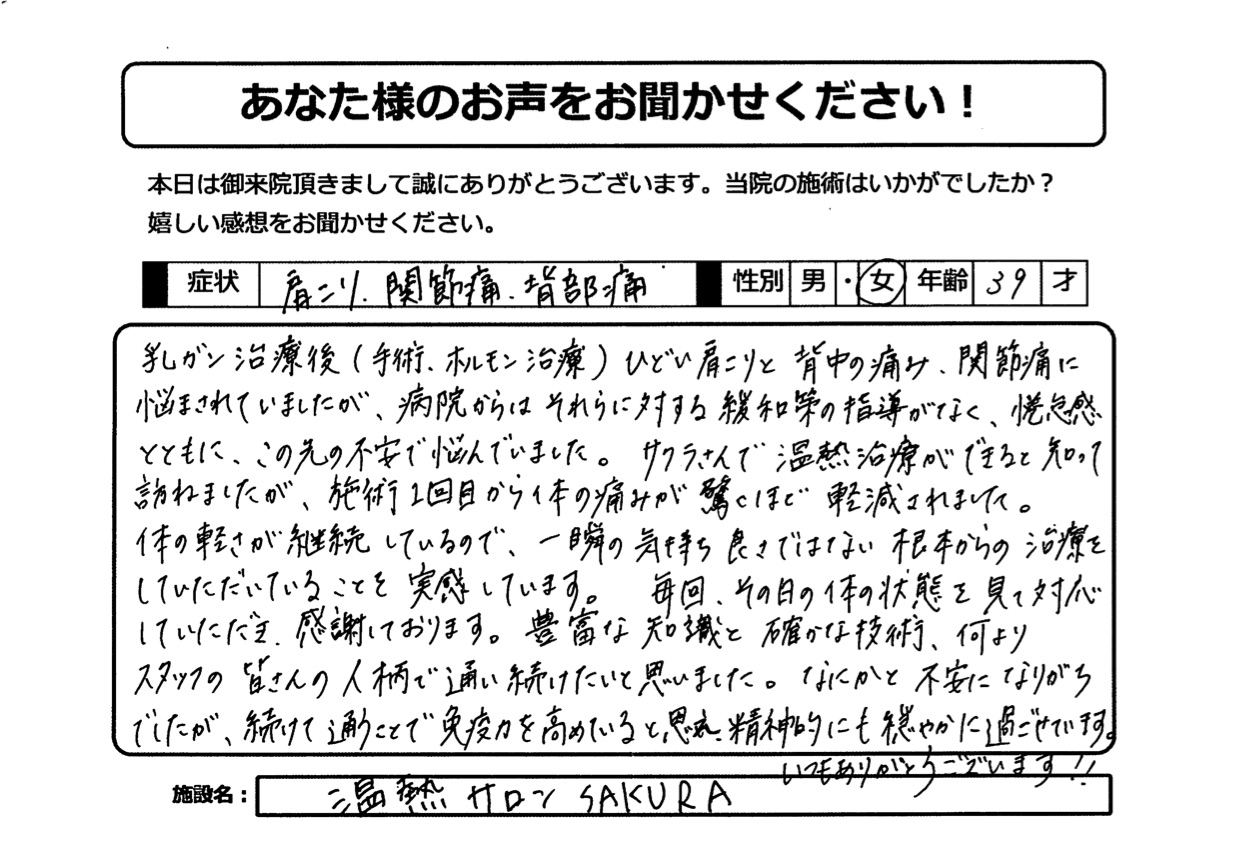 あなた様のお声をお聞かせください！
本日は御来院頂きまして誠にありがとうございます。当院の施術はいかがでしたか？
嬉しい感想をお聞かせください。
症状 肩こり、関節痛、背部痛 性別 男・女 年齢 39 才
乳ガン治療後（手術、ホルモン治療）ひどい肩こりと背中の痛み、関節痛に
悩まされていましたが、病院からはそれらに対する緩和策の指導がなく、倦怠感
とともに、この先の不安で悩んでいました。サクラさんで温熱治療ができると知って
訪ねましたが、施術1回目から体の痛みが驚くほど軽減されました。
体の軽さが継続しているので、一瞬の気持ち良さではない根本からの治療を
していただいていることを実感しています。毎回、その日の体の状態を見て対応
していただき、感謝しております。豊富な知識と確かな技術、何より
スタッフの皆さんの人柄で通い続けたいと思いました。なにかと不安になりがち
でしたが、続けて通うことで免疫力を高めていると思え、精神的にも穏やかに過ごせています。
いつもありがとうございます!!
施設名： 温熱サロン SAKURA